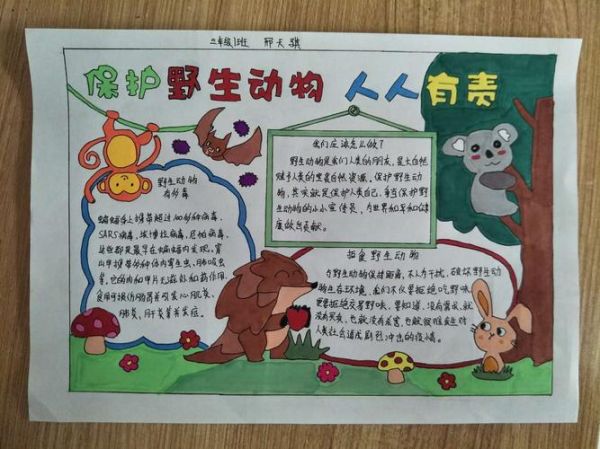 三年级1班 邢天骐
保护野生动物 人人有责
我们应该怎么做?
野生动物是我们人类的朋友,是大自然
赋予人类的宝贵自然资源。保护野生动
物,其实就是保护人类自己,争当保护野
生动物的小小宣传员,为世界和平和健
康做出贡献。
野生动物
有多毒
蝙蝠身上携带超过100多种病毒,
SARS病毒,埃博拉病毒,尼帕病毒,
这些都是最早在蝙蝠内发现,穿
山甲携带多种体内寄生虫、肺吸虫
等,它的肉和甲片无滋补和药作用,
食用可损伤肠胃并引发心肌炎、
肺炎、肝炎等并发症。
拒食野生动物
与野生动物保持距离,不人为干扰、破坏野生动
物生存环境。我们不仅要拒绝吃野味,
更要拒绝交易野味。要知道,没有需求,就
没有买卖,也就没有杀害,也就很难发生对
人类社会造成剧烈冲击的疫情。